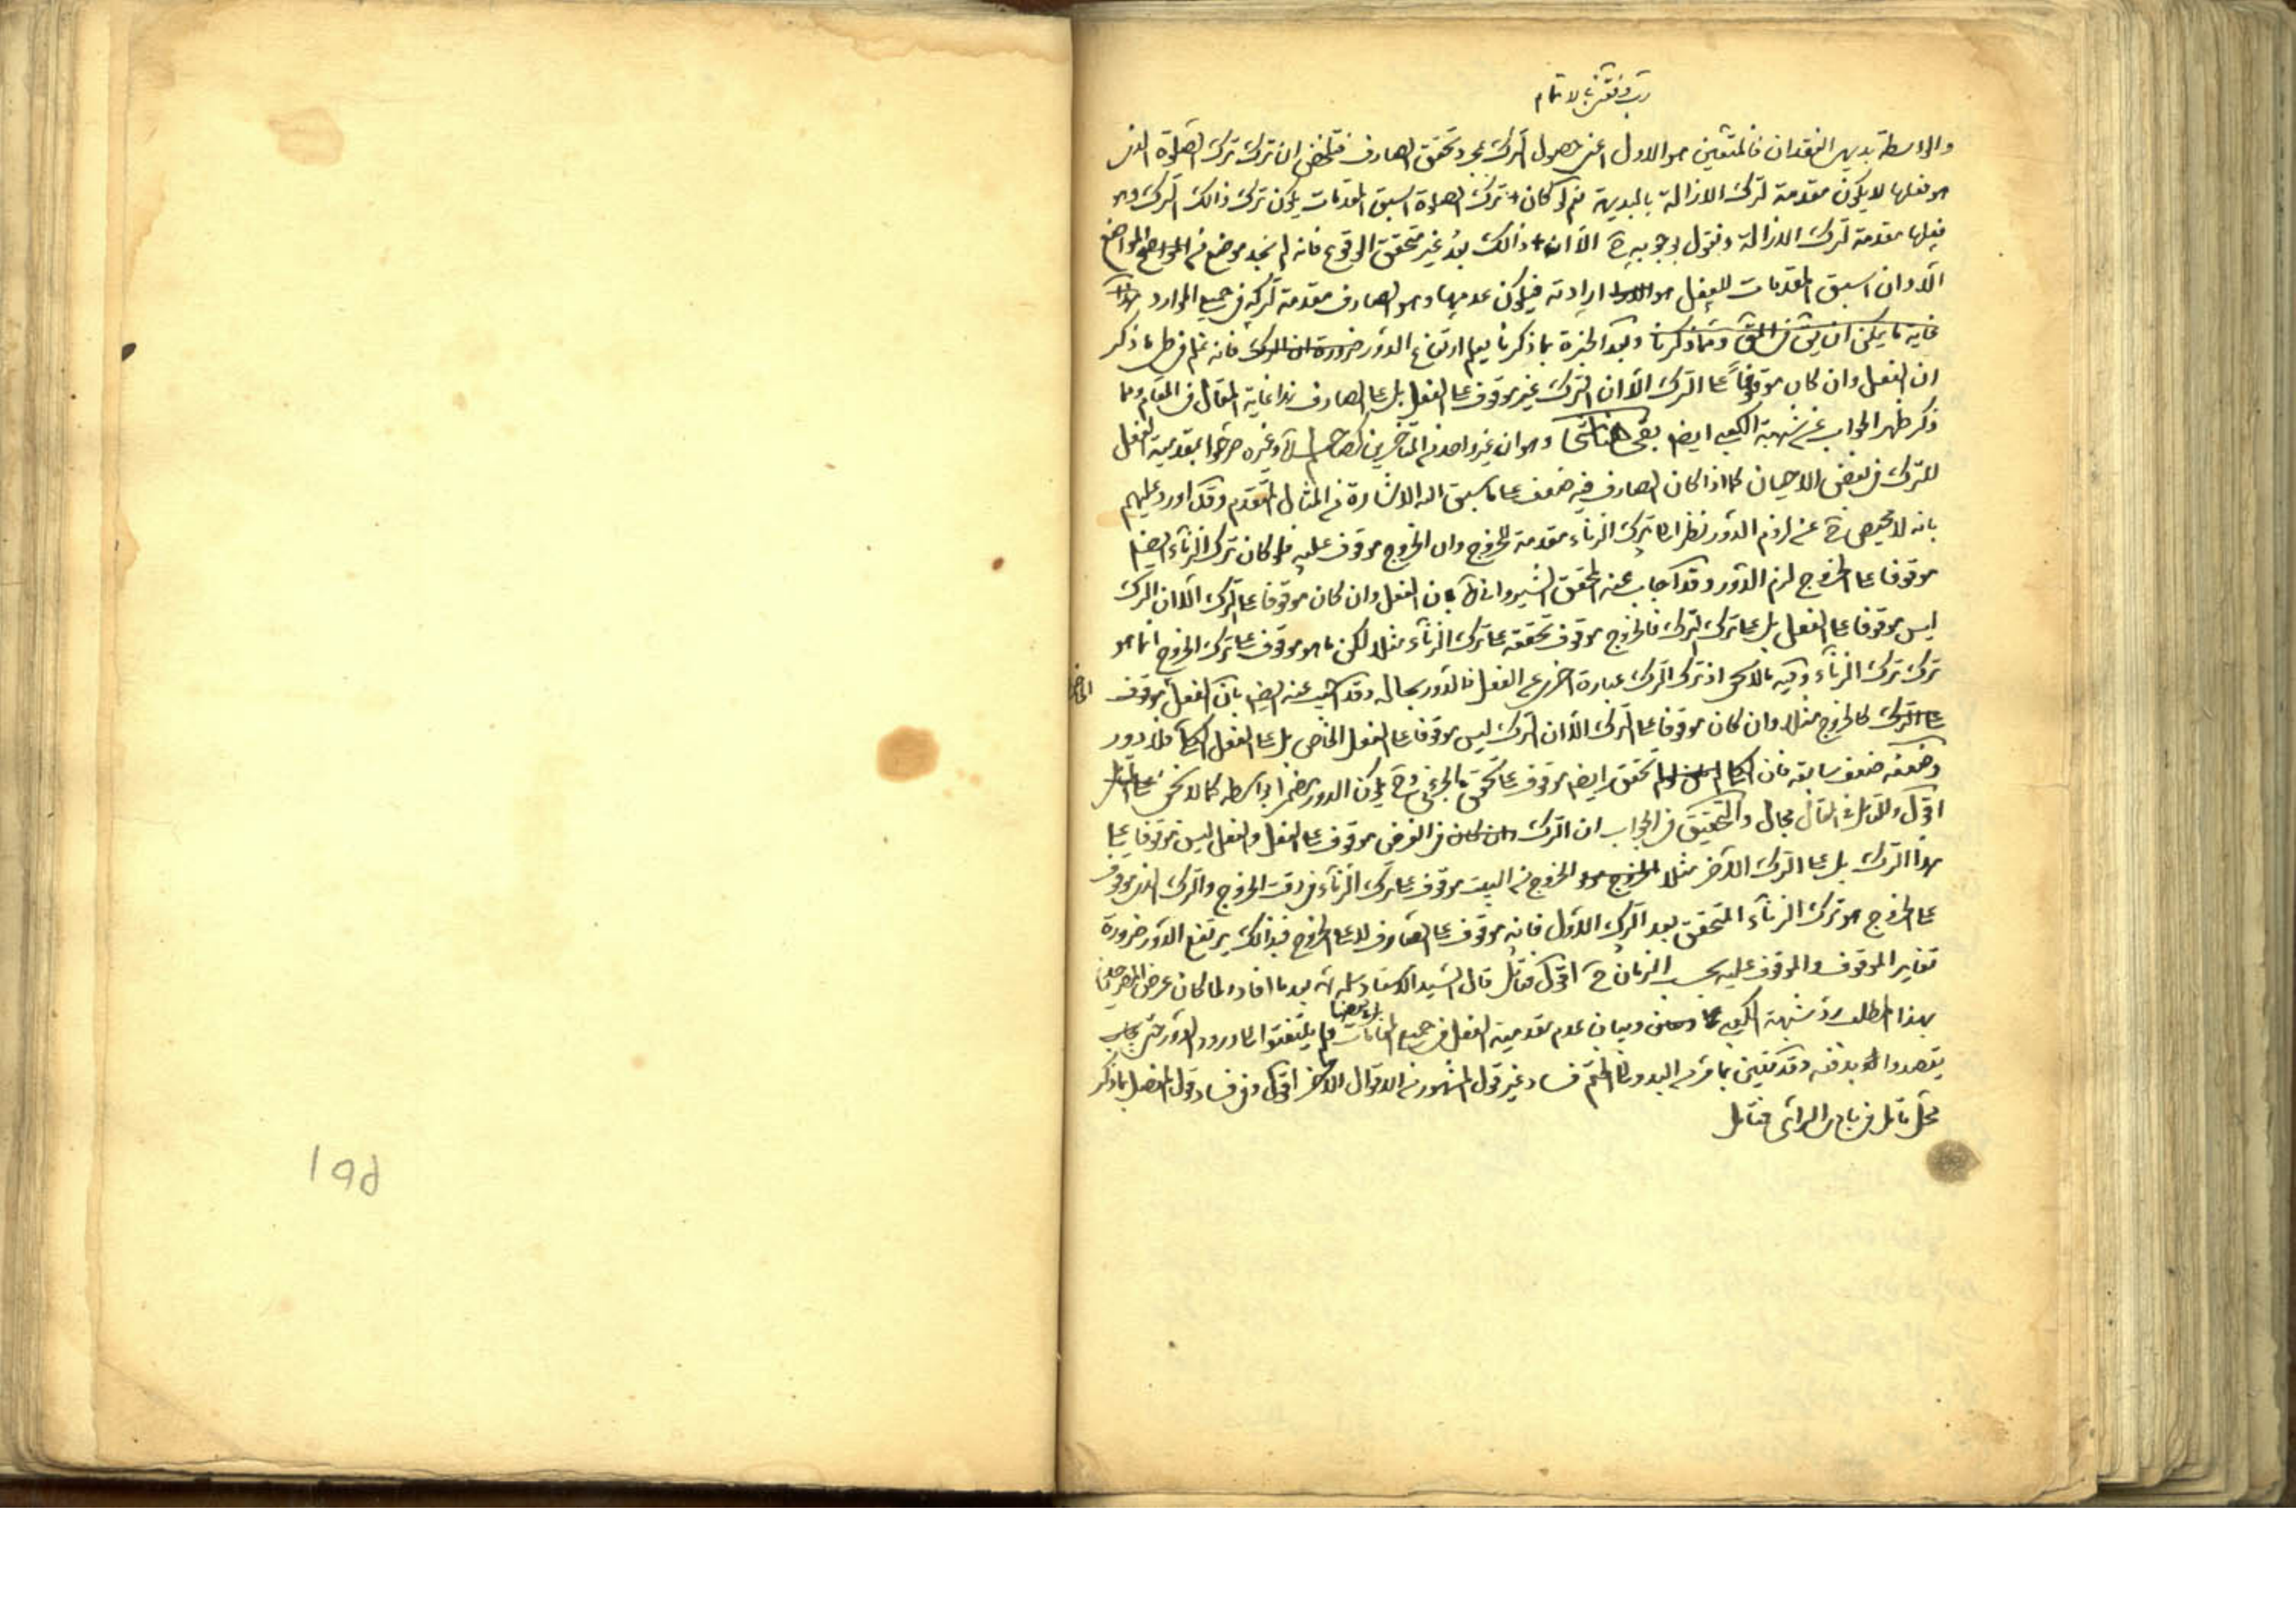 رب وفقني بالاتمام
والواسطة بديهي الفقدان فالمتعين هو الاول اعني حصول الترك بمجرد تحقق الصارف فتلخص ان ترك ترك الصلوة الذي
هو فعلها لا يكون مقدمة لترك الازالة بالبديهة نعم لو كان ترك الصلوة اسبق المقدمات يكون ترك ذالك الترك وهو
فعلها مقدمة لترك الازالة ونقول بوجوبه ح الا ان ذالك بعد غير متحقق الوقوع فانه لم نجد موضع من المواضع
الا وان اسبق المقدمات للفعل هو ارادته فيكون عدمها وهو الصارف مقدمة لتركه في جميع الموارد هذا
غاية ما يمكن ان يق في المق ومما ذكرنا وبعد الخبرة بما ذكرنا يعلم ارتفاع الدور ضرورة ان الترك فانه علم في ظل ما ذكر
ان الفعل وان كان موقوفا على الترك الا ان الترك غير موقوف على الفعل بل على الصارف هذا غاية المقال في المقام ومما
ذكر ظهر الجواب عن شبهة الكعبي ايضا بقي هنا شئ وهو ان غير واحد من المتاخرين كصاحب لم وغيره صرحوا بمقدمية الفعل
للترك في بعض الاحيان كما اذا كان الصارف فيه ضعف على ما سبق اليه الاشارة في المثال المتقدم وقد اورد عليهم
بانه لا محيص ح عن لزوم الدور نظرا الى ترك الزناء مقدمة للخروج وان الخروج موقوف عليه فلو كان ترك الزناء ايضا
موقوفا على الخروج لزم الدور وقد اجاب عنه المحقق الشيرواني بان الفعل وان كان موقوفا على الترك الا ان الترك
ليس موقوفا على الفعل بل على ترك الترك فالخروج موقوف تحققه على ترك الزناء مثلا لكن ما هو موقوف على ترك الخروج انما هو
ترك ترك الزناء وفيه ما لا يخفى اذ ترك الترك عبارة اخرى عن الفعل فالدور بحاله وقد اجيب عنه ايضا بان الفعل موقوف
الخاص
على الترك كالخروج مثلا وان كان موقوفا على الترك الا ان الترك ليس موقوفا على الفعل الخاص بل على الفعل الكلي فلا دور
وضعفه ضعف سابقه فان تحقق ايضا موقوف على تحقق ما الجزئي وح يكون الدور مضمرا بواسطة كما لا يخفى
اقول وللتامل في المقال مجال والتحقيق في الجواب ان الترك وان كان في الفرض موقوف على الفعل والفعل ليس موقوفا على
هذا الترك بل على الترك الاخر مثلا الخروج من البيت موقوف على ترك الزناء في وقت الخروج والترك الذي موقوف
على الخروج هو ترك الزناء المتحقق بعد الترك الاول فانه موقوف على الصارف لا على الخروج فبذالك يرتفع الدور ضرورة
تغاير الموقوف والموقوف عليه بحسب الزمان ح اقول فتامل قال السيد الاستاد سلمه الله بعد ما افاد ولما كان غرض المصرحين
بهذا المطلب رد شبهة الكعبي وبيان عدم مقدمية الفعل في جميع المقامات لم يلتفتوا الى ورود الدور حتى
يقصدوا لدفعه وقد تبين بما مر من البدو الى الختم فساد غير قول المشهور من الاقوال الاخر اقول وفي فساد قول المفصل بما ذكر
محل تامل في بادي الراي فتامل
195